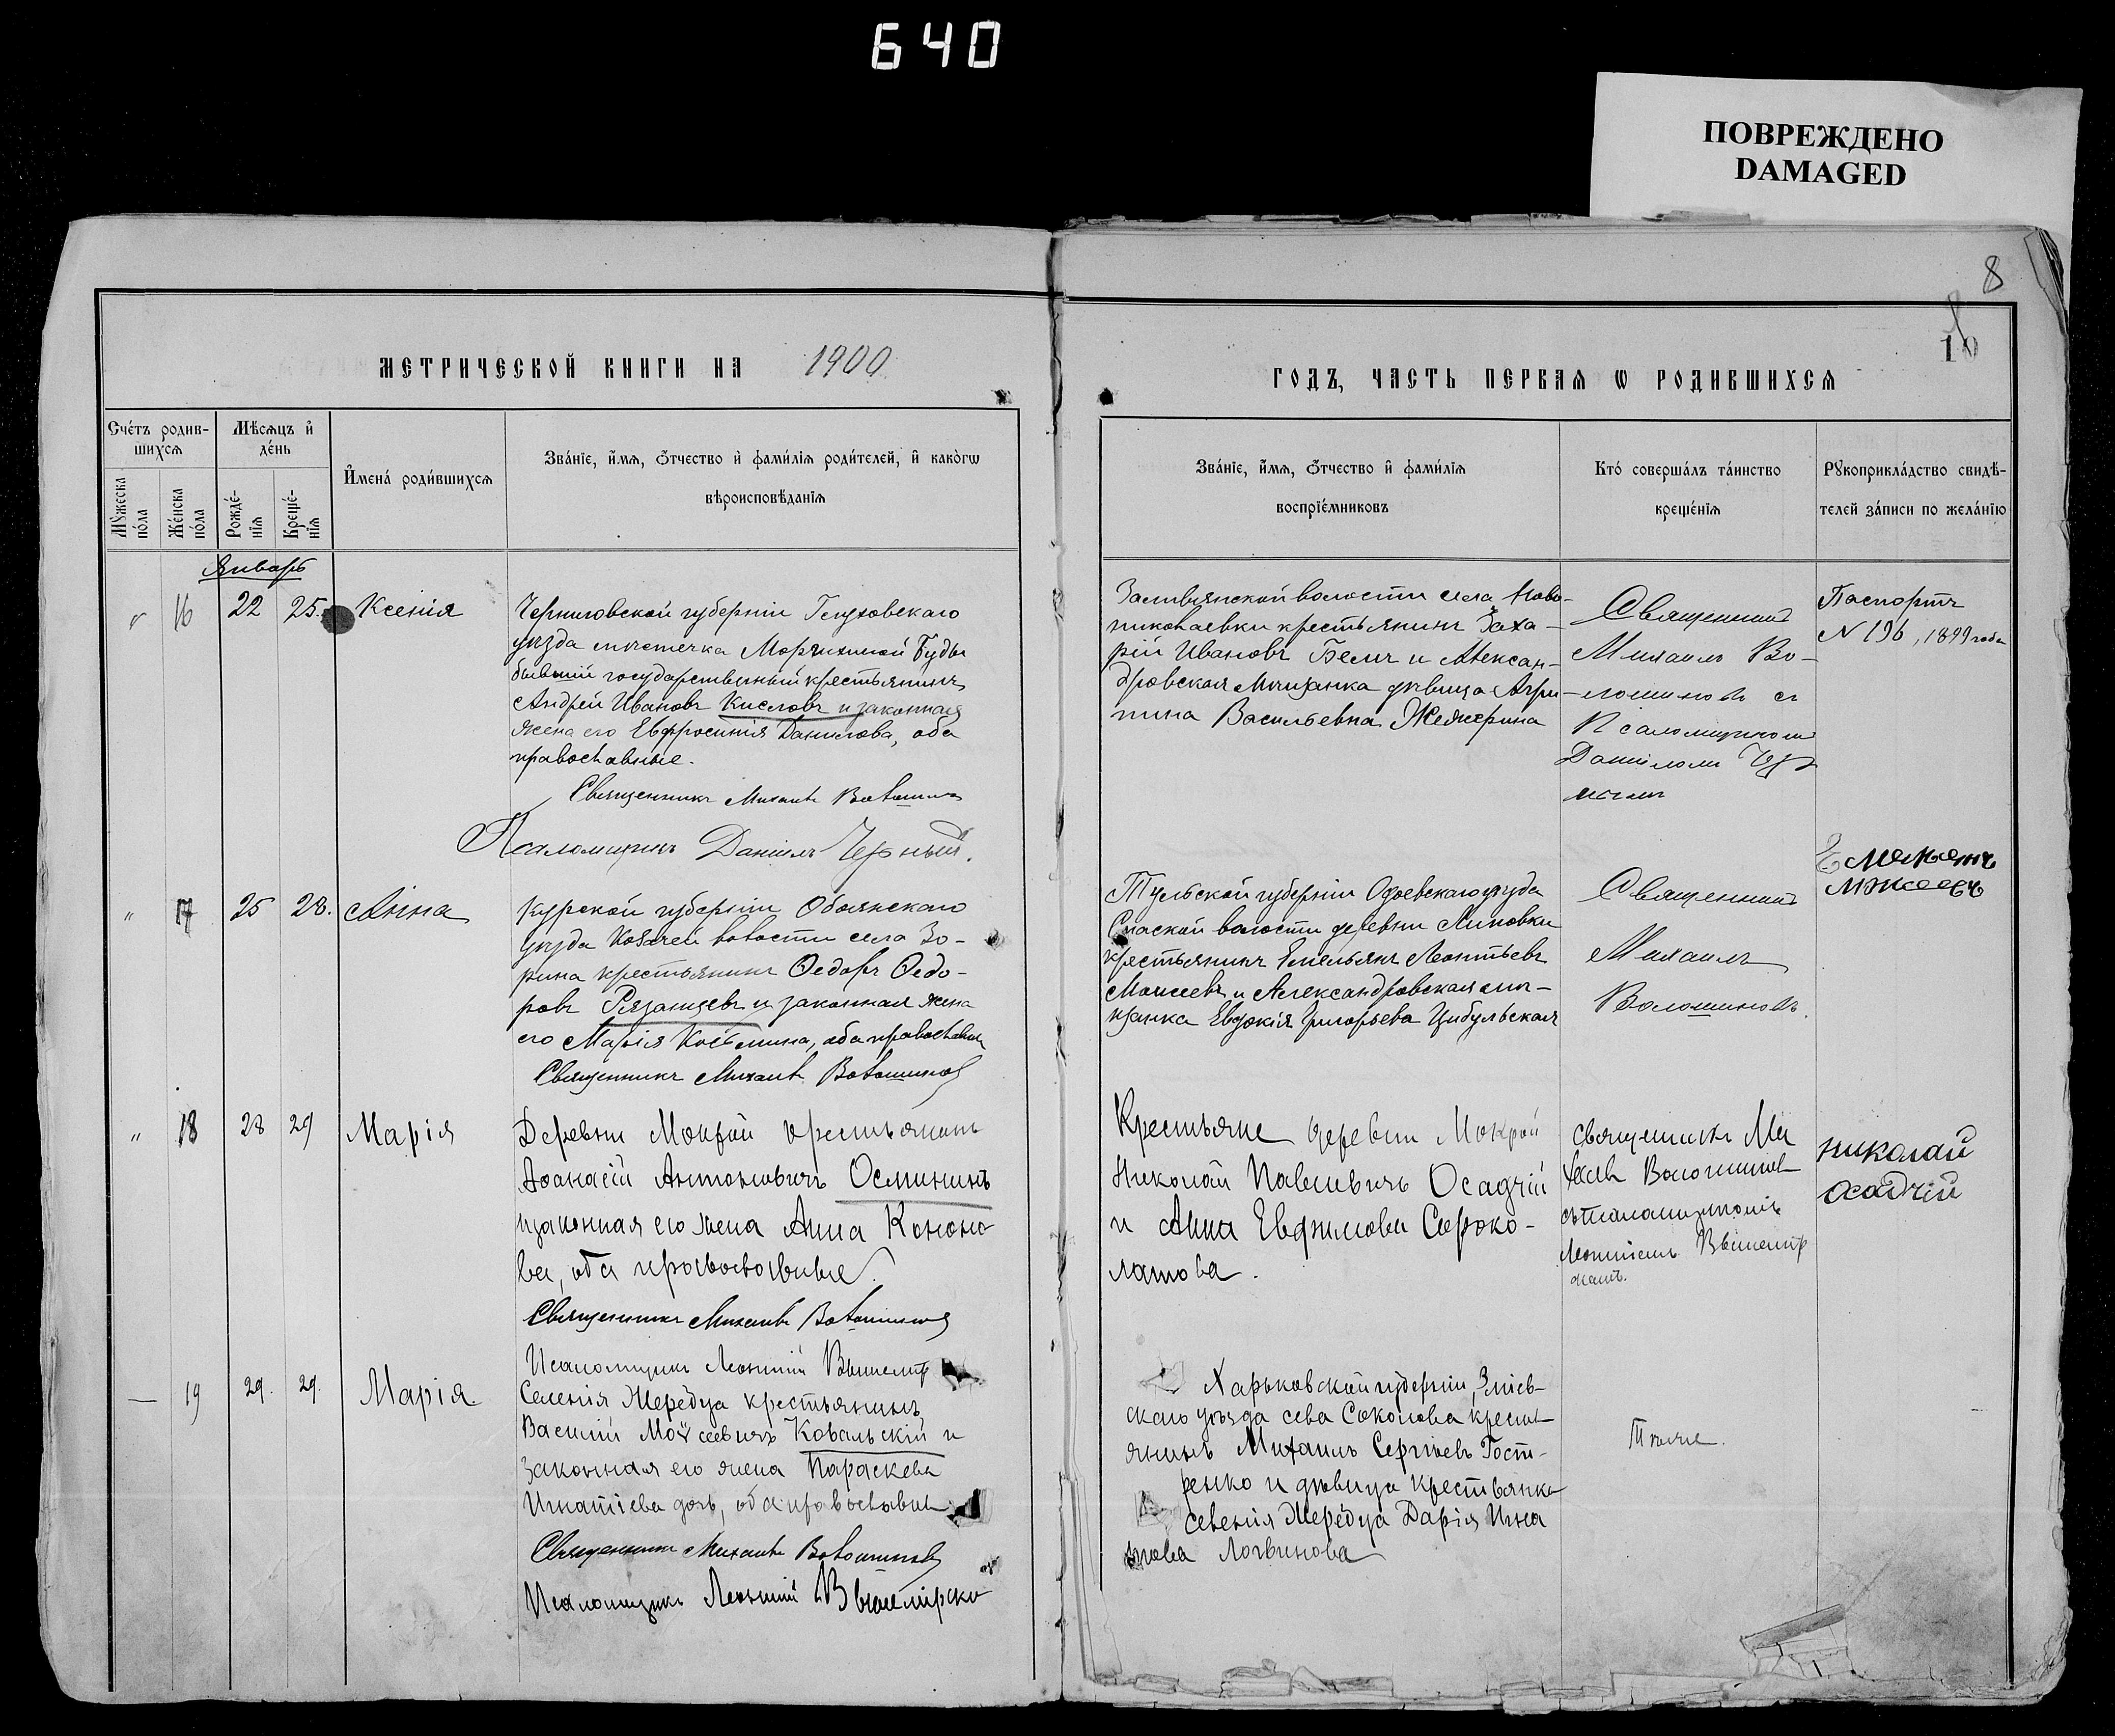 640
ПОВРЕЖДЕНО
DAMAGED
8
10
МЕТРИЧЕСКОЙ КНИГИ НА 1900
ГОДЪ, ЧАСТЬ ПЕРВАЯ Ѡ РОДИВШИХСЯ
Сче́тъ родив-
шихся
Мѣсяцъ и҆
де́нь
Му́жеска по́ла
Же́нска по́ла
Рожде́-
нїя
Креще́-
нїя
И҆мена́ роди́вшихся
Зва́нїе, и҆́мя, ѻ҆́тчество и҆ фами́лїя роди́телей, и҆ како́гѡ
вѣроисповѣ́данїя
Зва́нїе, и҆́мя, ѻ҆́тчество и҆ фами́лїя
воспрїе́мниковъ
Кто́ соверша́лъ та́инство
креще́нїя
Рꙋкоприкла́дство свидѣ́-
телей за́писи по жела́нїю
Январь
" 16 22 25. Ксенія
Черниговской губерніи Глуховскаго
уѣзда мѣстечка Марчихиной Буды
бывшій государственный крестьянинъ
Андрей Ивановъ Кисловъ и законная
жена его Евфросинія Данилова, оба
православные.
Священникъ Михаилъ Волошиновъ
Псаломщикъ Даніилъ Черный.
волости села Ново-
николаевки крестьянинъ Заха-
рій Ивановъ Бемъ и Алексан-
дровская мѣщанка дѣвица Агри-
пина Васильевна Жежерина
Священникъ
Михаилъ Во-
лошиновъ съ
Псаломщикомъ
Даніиломъ Чер
нымъ
Паспортъ
N 196, 1899 года
" 17 25 28. Анна
Курской губерніи Обоянскаго
уѣзда Казачей волости села Зо-
рина крестьянинъ Ѳедоръ Ѳедо-
ровъ Рязанцевъ и законная жена
его Марія Косьмина, оба православные
Священникъ Михаилъ Волошиновъ
Тульской губерніи Одоевскаго уѣзда
Спаской волости деревни Липовки
крестьянинъ Емельянъ Леонтьевъ
Моисеевъ и Александровская мѣ-
щанка Евдокія Григорьева Цибульская
Священникъ
Михаилъ
Волошиновъ.
" 18 28 29 Марія
Деревни Мокрой крестьянинъ
Аѳанасій Антоновичъ Осмининъ
и законная его жена АннаКононо
ва, оба православные.
Священникъ Михаилъ Волошиновъ
Псаломщикъ Леонтій Вышемір
Крестьяне деревни Мокрой
Николай Павловичъ Осадчій
и Анна Евфимова Сороко-
латова.
Священникъ Ми
хаилъ Волошиновъ
съ псаломщикомъ
Леонтіемъ Вышемір
скимъ.
николай
осадчій
— 19 29. 29. Марія
Селенія Жеребца крестьянинъ
Василій Моѵсеевичъ Ковальскій и
законная его жена Параскева
Игнатіева дочь, оба православные
Священникъ Михаилъ Волошиновъ
Псаломщикъ Леонтій Вышемірско
Харьковской губерніи, Зміев-
скаго уѣзда села Соколова крестья
янинъ Михаилъ Сергіевъ Гост-
ренко и дѣвица крестьянка
селенія Жеребца Дарія Игна
това Логвинова
Тѣже.